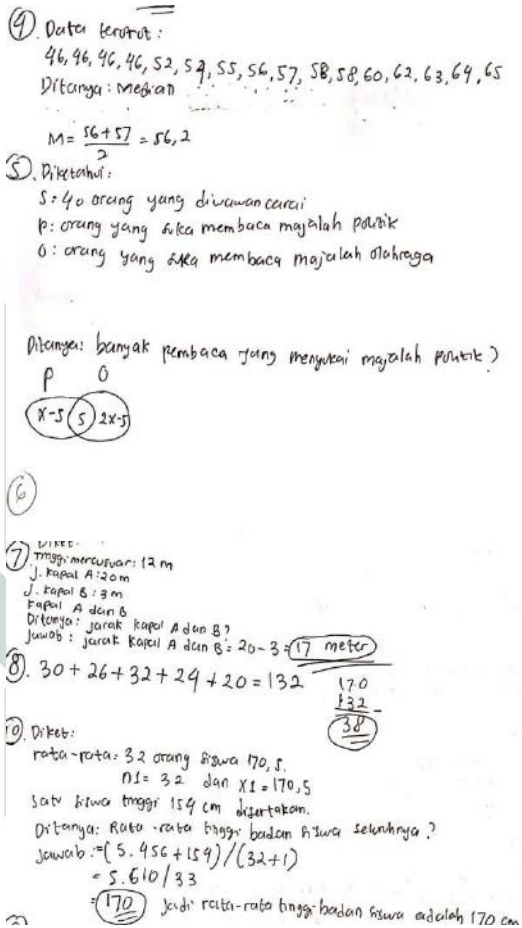 4. Data terurut :
46, 46, 46, 46, 52, 54, 55, 56, 57, 58, 58, 60, 62, 63, 64, 65
Ditanya : Median
M = 56 + 57 / 2 = 56,2
5. Diketahui :
S : 40 orang yang diwawancarai
P : orang yang suka membaca majalah politik
O : orang yang suka membaca majalah olahraga
Ditanya : banyak pembaca yang menyukai majalah politik ?
P O
x-5 5 2x-5
6
7. Diket :
Tinggi mercusuar : 12 m
J. kapal A : 20 m
J. kapal B : 3 m
kapal A dan B
Ditanya : jarak kapal A dan B ?
Jawab : jarak kapal A dan B = 20 - 3 = 17 meter
8. 30 + 26 + 32 + 24 + 20 = 132
170
132 -
38
Diket :
rata-rata : 32 orang siswa 170,5.
n1 = 32 dan x1 = 170,5
satu siswa tinggi 154 cm disertakan.
Ditanya : Rata-rata tinggi badan siswa seluruhnya ?
Jawab : = (5.456 + 154) / (32 + 1)
= 5.610 / 33
= 170 Jadi rata-rata tinggi badan siswa adalah 170 cm